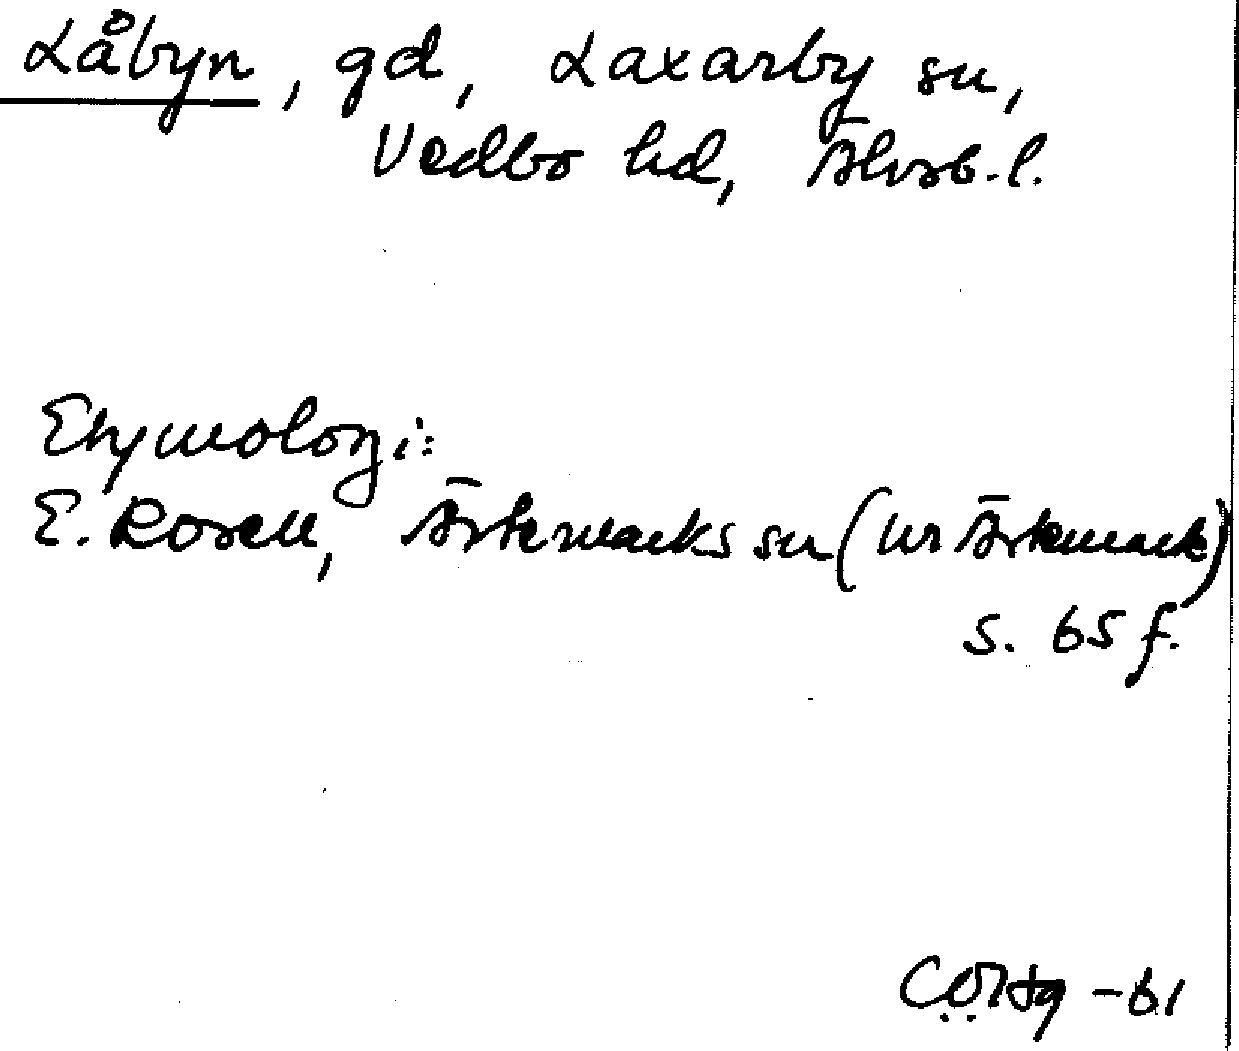 Låbyn, gd, Laxarby sn,
Vedbo hd, Älvsb. l.
Etymologi:
E. Rosell, Ärtemarks sn (ur Ärtemark)
s. 65 f.
-61